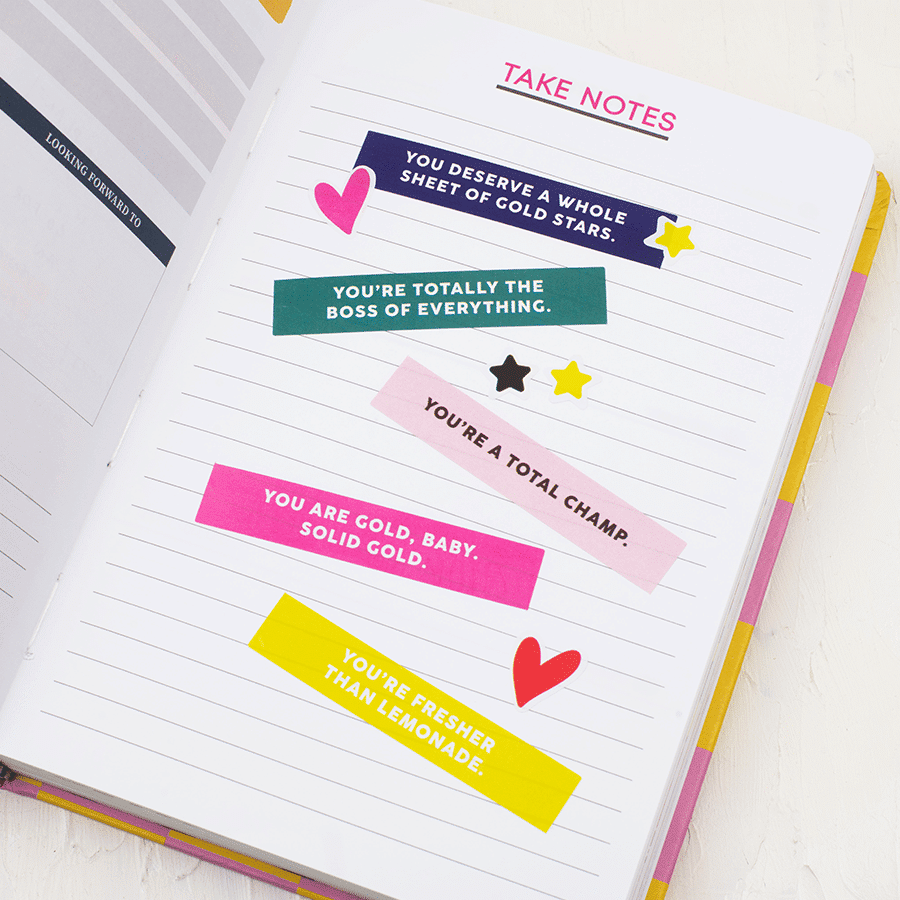 TAKE NOTES
LOOKING FORWARD TO
YOU DESERVE A WHOLE
SHEET OF GOLD STARS.
YOU'RE TOTALLY THE
BOSS OF EVERYTHING.
YOU'RE A TOTAL CHAMP.
YOU ARE GOLD, BABY.
SOLID GOLD.
YOU'RE FRESHER
THAN LEMONADE.